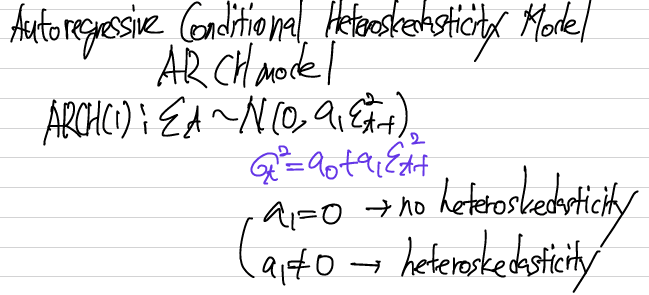 Autoregressive Conditional Heteroskedasticity Model
ARCH model
ARCH(1) : ε_t ~ N(0, a₁ε²_{t-1})
σ_t² = a₀ + a₁ε²_{t-1}
a₁ = 0 → no heteroskedasticity
a₁ ≠ 0 → heteroskedasticity